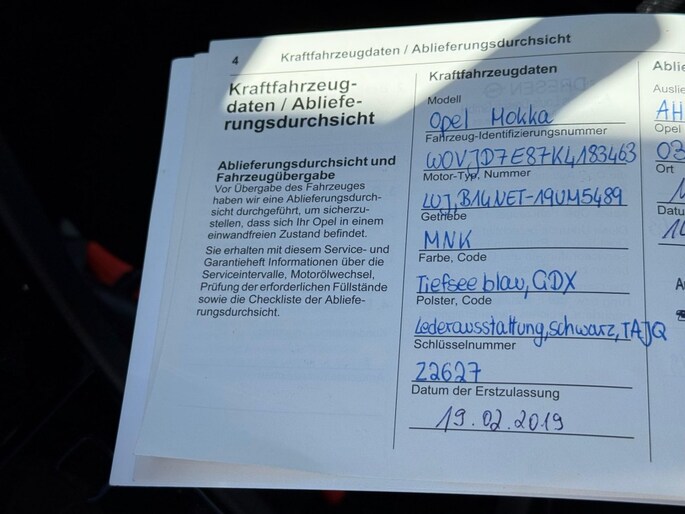 4
Kraftfahrzeugdaten / Ablieferungsdurchsicht
Kraftfahrzeug-
daten / Abliefe-
rungsdurchsicht
Ablieferungsdurchsicht und
Fahrzeugübergabe
Vor Übergabe des Fahrzeuges
haben wir eine Ablieferungsdurch-
sicht durchgeführt, um sicherzu-
stellen, dass sich Ihr Opel in einem
einwandfreien Zustand befindet.
Sie erhalten mit diesem Service- und
Garantieheft Informationen über die
Serviceintervalle, Motorölwechsel,
Prüfung der erforderlichen Füllstände
sowie die Checkliste der Abliefe-
rungsdurchsicht.
Kraftfahrzeugdaten
Modell
Opel Mokka
Fahrzeug-Identifizierungsnummer
W0VJD7E87K4183463
Motor-Typ, Nummer
LUJ,B14NET-19UM5489
Getriebe
MNK
Farbe, Code
Tiefsee blau, GDX
Polster, Code
Lederausstattung, schwarz, TAJQ
Schlüsselnummer
Z2627
Datum der Erstzulassung
19.02.2019
Ablie
Auslie
AH
Opel
03
Ort
Datu